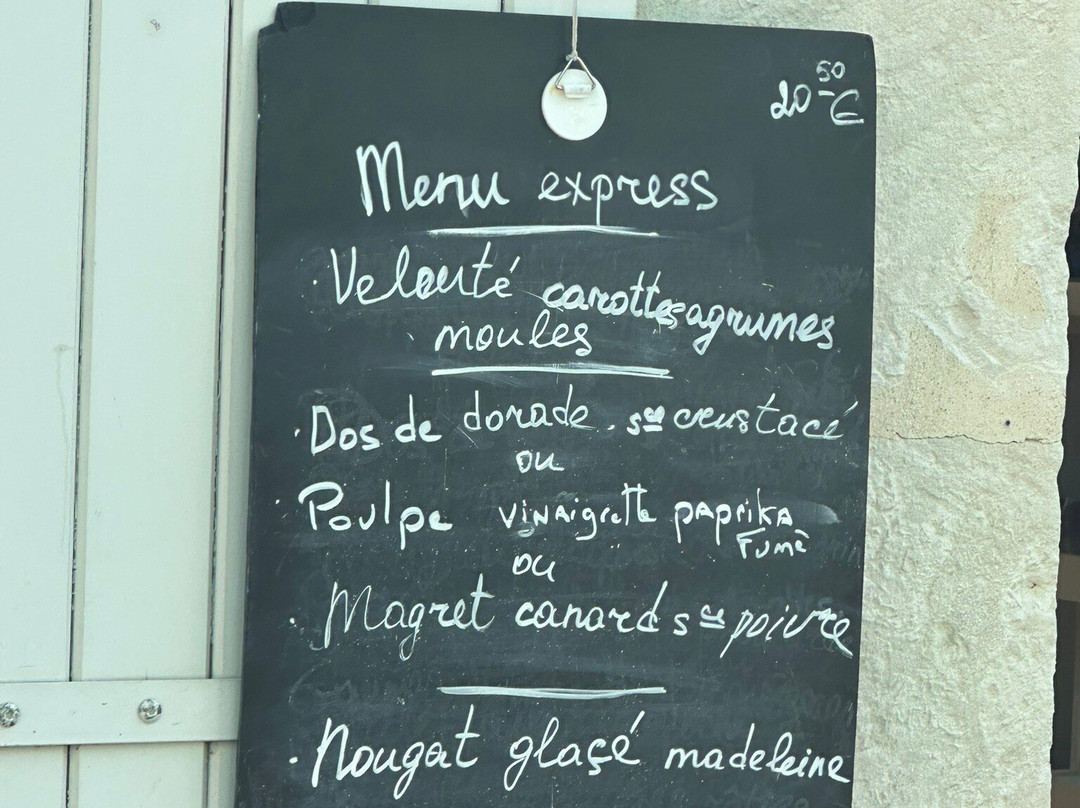 20 50 €
Menu express
· Velouté carottes agrumes
moules
· Dos de dorade. sce crustacé
ou
· Poulpe vinaigrette paprika
Fumé
ou
· Magret canard sce poivre
· Nougat glaçé madeleine